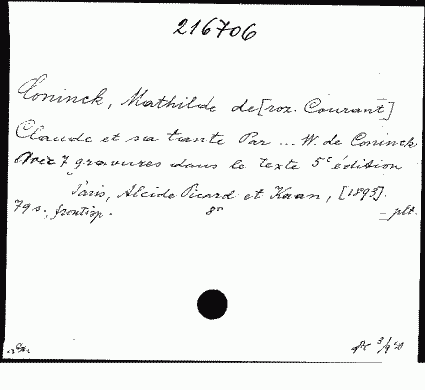 216706
Coninck, Mathilde de [roz. Courant]
Claude et sa tante Par ... W. de Coninck
Avec 7 gravures dans le texte 5e édition
Paris, Alcide Picard et Kaan, [1893].
79 s., frontisp. 8° – plt.